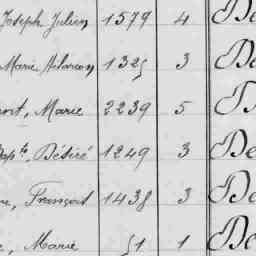 Joseph Julien 1579 4 De
Marie 1325 3 De
Marie 2239 5
Désiré 1249 3 De
François 1438 3 De
Marie 51 1 De